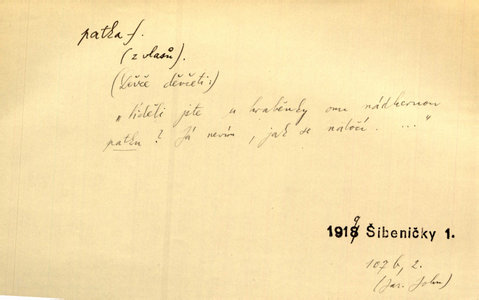 patka f.
(z vlasů).
(Děvče děvčeti:)
"Viděli jste u hraběnky onu nádhernou
patku? Já nevím, jak se natočí. ..."
1919 Šibeničky 1.
107 b, 2.
(Jar. John)